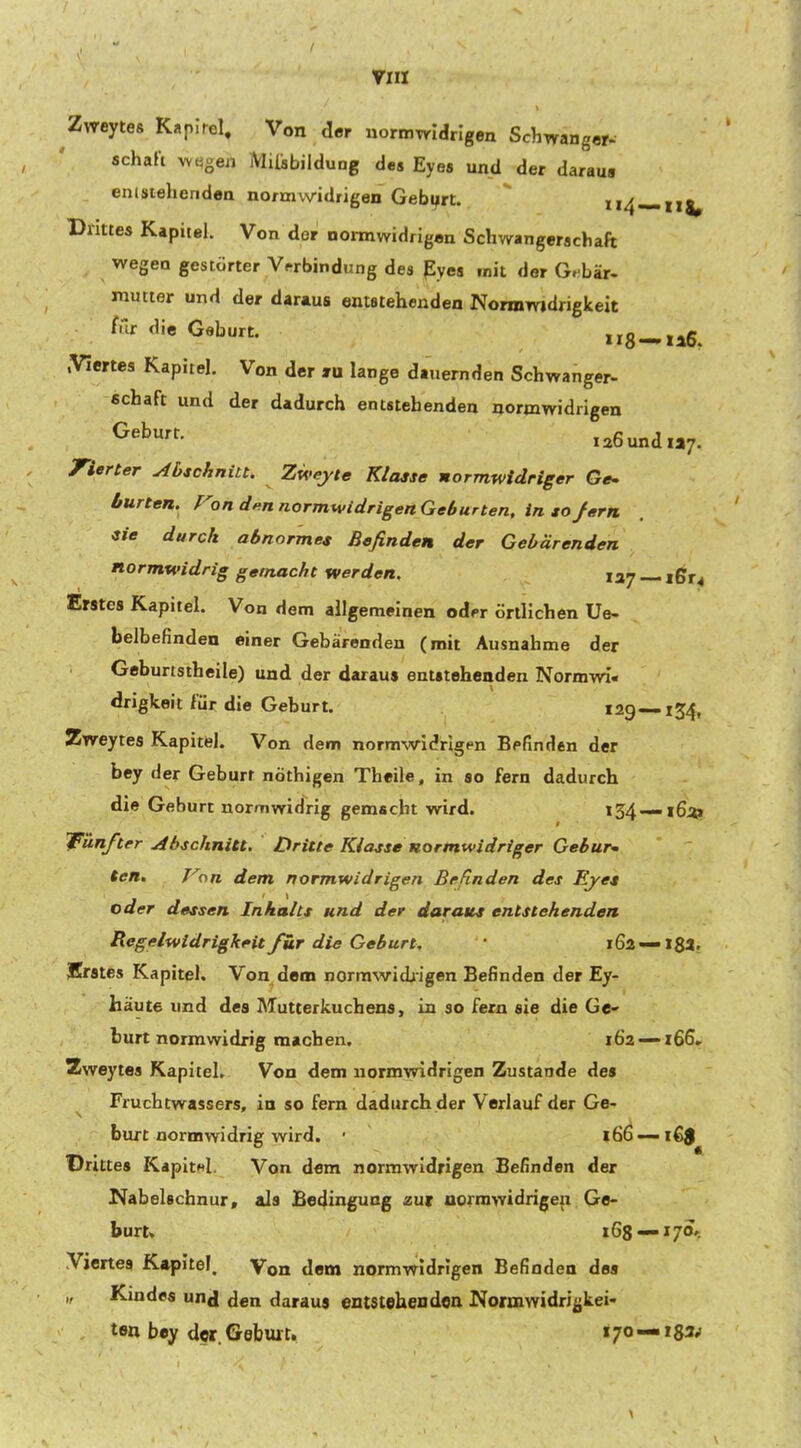 VIII
Zweytes Kapitel. Von der normwidrigen Schwanger-
schaft wegen Mifsbildung des Eyes und der daraus
entstehenden normwidrigen Geburt. 114—118.
Drittes Kapitel. Von der normwidrigen Schwangerschaft
wegen gestörter Verbindung des Eyes mit der Gebär-
mutter und der daraus entstehenden Normwidrigkeit
für die Geburt. 118—126.
Viertes Kapitel. Von der zu lange dauernden Schwanger-
schaft und der dadurch entstehenden normwidrigen
Geburt. 126 und 127.
Vierter Abschnitt. Zweyte Klasse normwidriger Ge-
burten. Von den normwidrigen Geburten, in so fern
sie durch abnormes Befinden der Gebärenden
normwidrig gemacht werden. 127—161.
Erstes Kapitel. Von dem allgemeinen oder örtlichen Ue-
belbefinden einer Gebärenden (mit Ausnahme der
Geburtstheile) und der daraus entstehenden Normwi-
drigkeit für die Geburt. 129—134.
Zweytes Kapitel. Von dem normwidrigen Befinden der
bey der Geburt nöthigen Theile, in so fern dadurch
die Geburt normwidrig gemacht wird. 134—162.
Fünfter Abschnitt. Dritte Klasse normwidriger Gebur-
ten. Von dem normwidrigen Befinden des Eyes
oder dessen Inhalts und der daraus entstehenden
Regelwidrigkeit für die Geburt. 162—182.
Erstes Kapitel. Von dem normwidrigen Befinden der Ey-
häute und des Mutterkuchens, in so fern sie die Ge-
burt normwidrig machen. 162—166.
Zweytes Kapitel. Von dem normwidrigen Zustande des
Fruchtwassers, in so fern dadurch der Verlauf der Ge-
burt normwidrig wird. 166—168
Drittes Kapitel. Von dem normwidrigen Befinden der
Nabelschnur, als Bedingung zur normwidrigen Ge-
burt. 168—170.
Viertes Kapitel. Von dem normwidrigen Befinden des
Kindes und den daraus entstehenden Normwidrigkei-
ten bey der Geburt. 170—182.